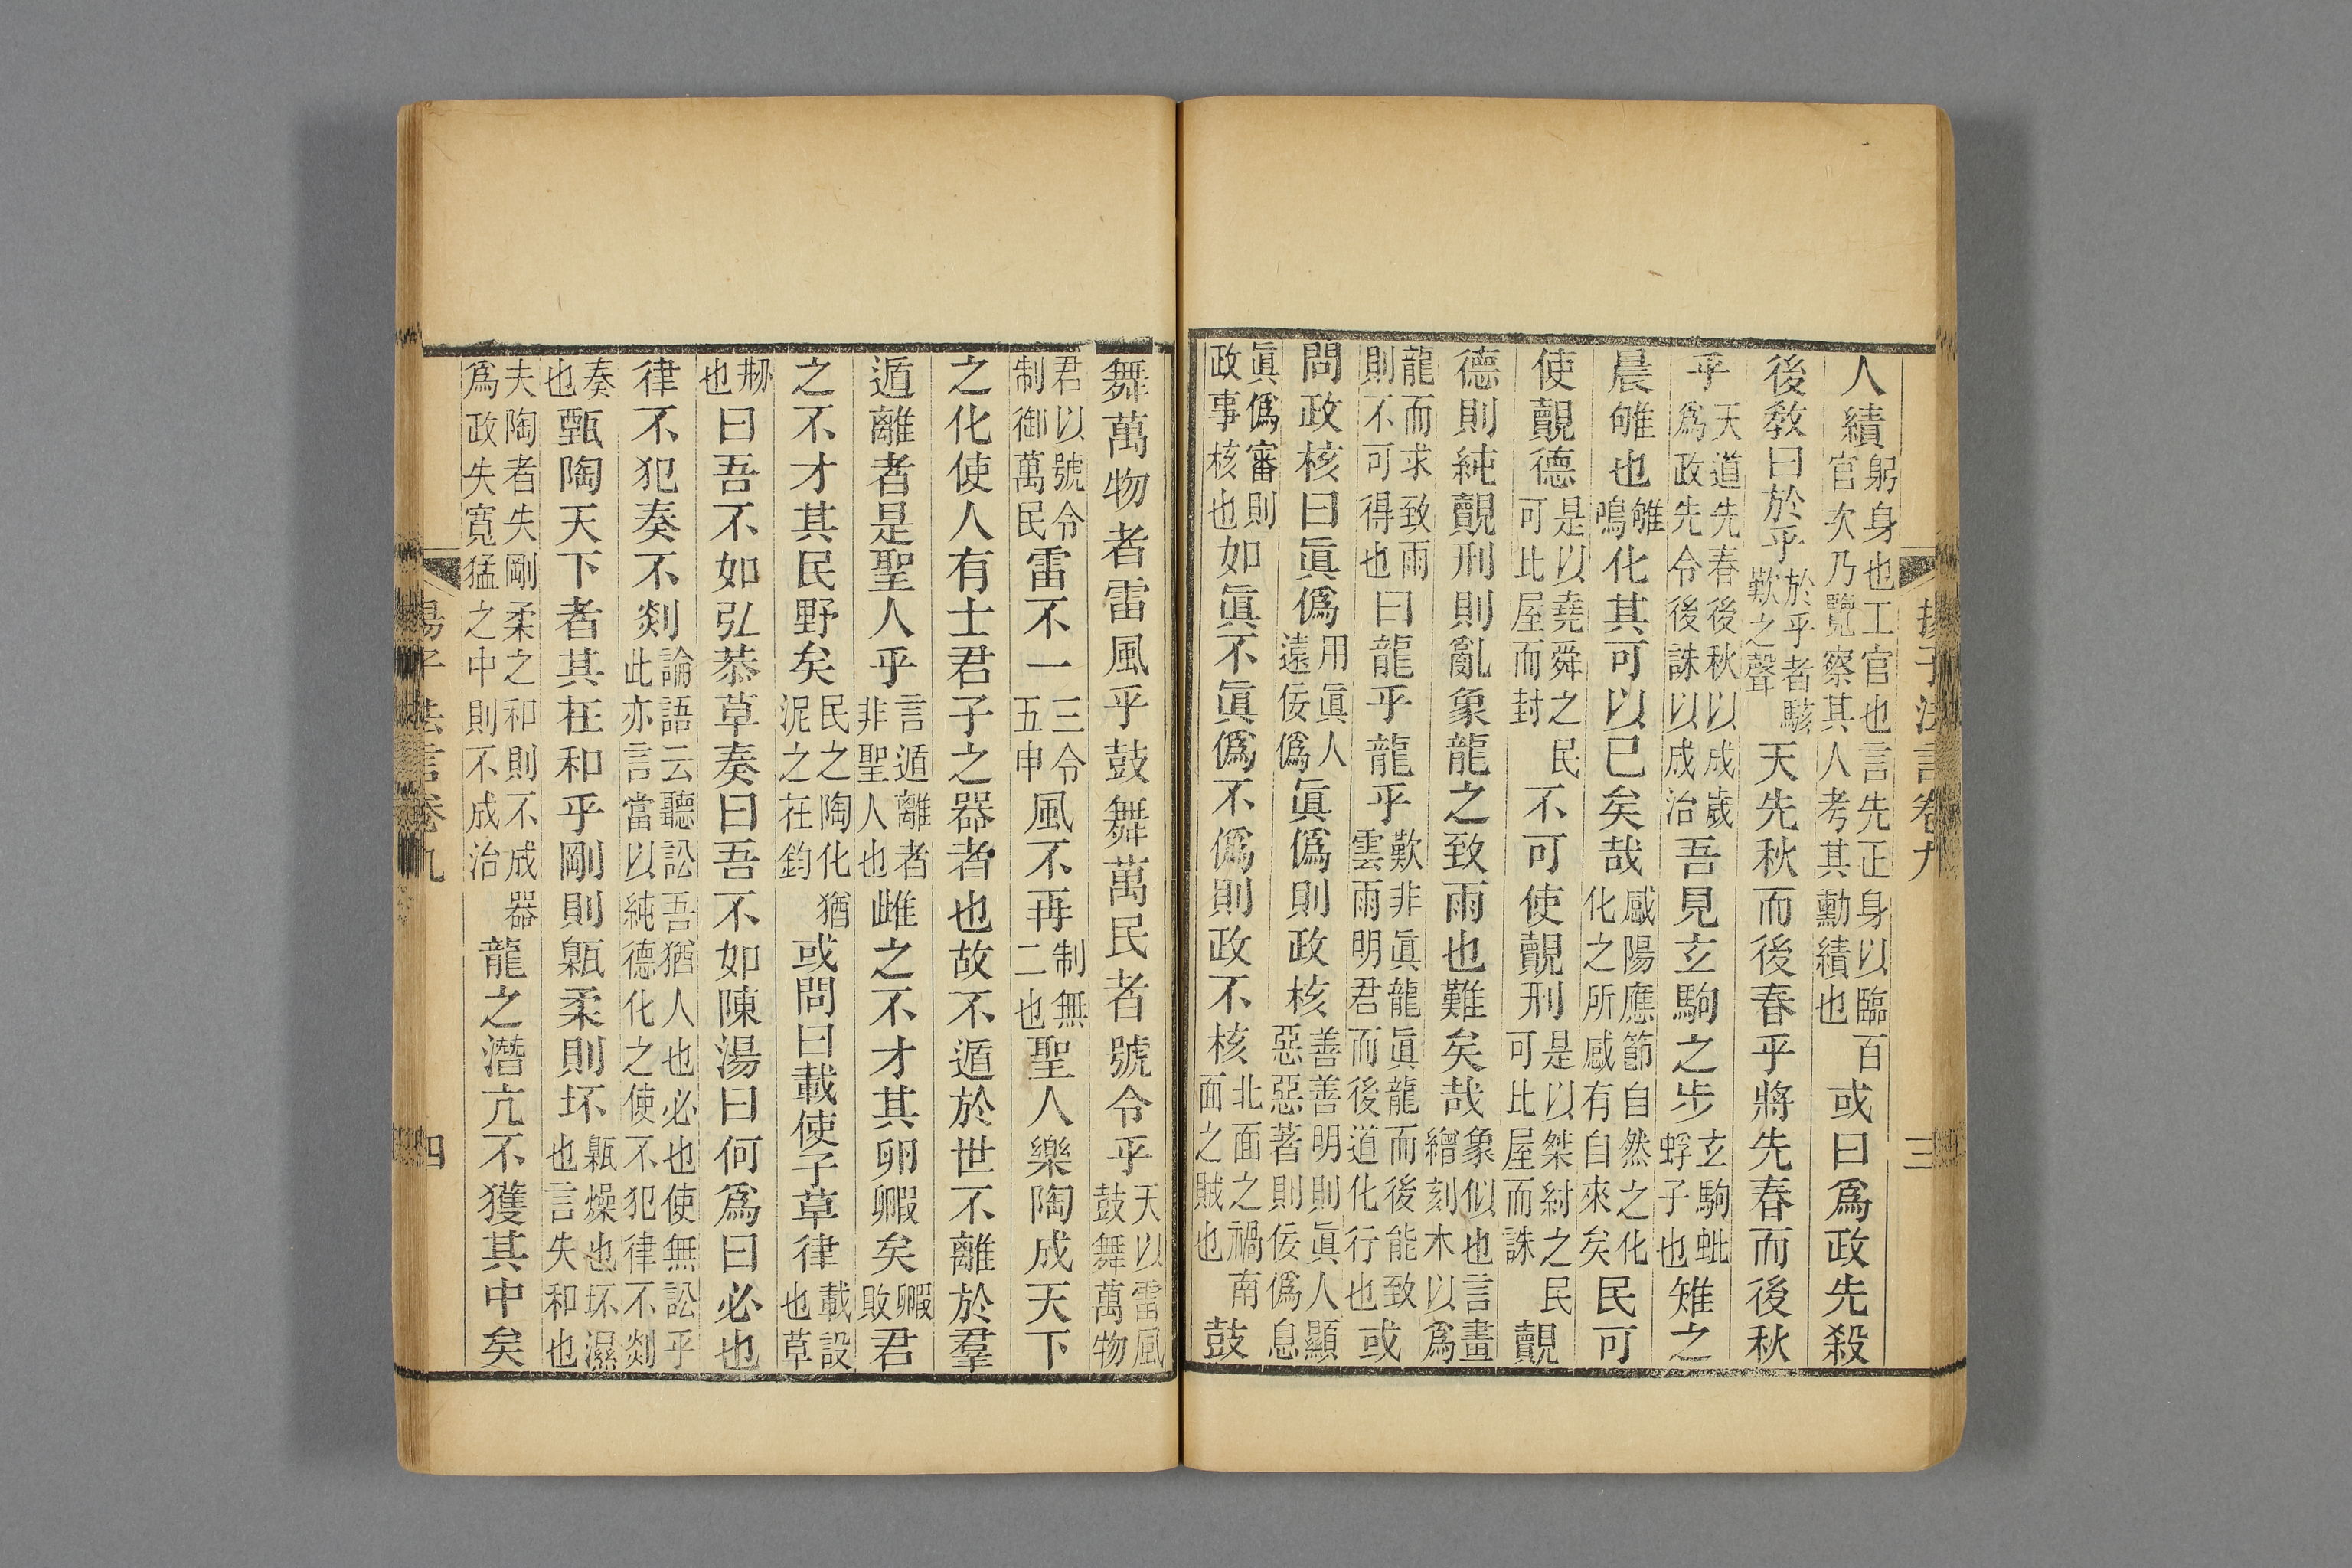 揚子法言卷九 三
人績躬身也工官也言先正身以臨百官次乃覽察其人考其勳績也或曰爲政先殺
後敎曰於乎於乎者駭歎之聲天先秋而後春乎將先春而後秋
乎天道先春後秋以成歲爲政先令後誅以成治吾見玄駒之步玄駒蚍蜉子也雉之
晨雊也雊鳴化其可以已矣哉感陽應節自然之化化之所感有自來矣民可
使覿德是以堯舜之民可比屋而封不可使覿刑是以桀紂之民可比屋而誅覿
德則純覿刑則亂象龍之致雨也難矣哉象似也言畫繪刻木以爲
龍而求致雨則不可得也曰龍乎龍乎歎非眞龍眞龍而後能致雲雨明君而後道化行也或
問政核曰眞僞用眞人遠佞僞眞僞則政核善善明則眞人顯惡惡著則佞僞息
眞僞審則政事核也如眞不眞僞不僞則政不核北面之禍南面之賊也鼓
舞萬物者雷風乎鼓舞萬民者號令乎天以雷風鼓舞萬物
君以號令制御萬民雷不一三令五申風不再制無二也聖人樂陶成天下
之化使人有士君子之器者也故不遁於世不離於羣
遁離者是聖人乎言遁離者非聖人也雌之不才其卵毈矣毈敗君
之不才其民野矣民之陶化猶泥之在鈞或問曰載使子草律載設也草
刱也曰吾不如弘恭草奏曰吾不如陳湯曰何爲曰必也
律不犯奏不剡論語云聽訟吾猶人也必也使無訟乎此亦言當以純德化之使不犯律不剡
奏也甄陶天下者其在和乎剛則甈柔則坏甈燥也坏濕也言失和也
夫陶者失剛柔之和則不成器爲政失寬猛之中則不成治龍之潛亢不獲其中矣
揚子法言卷九 四